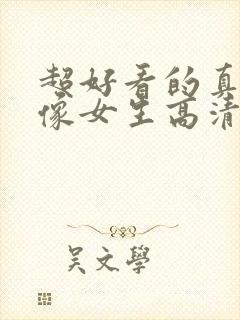 超好看的真
像女生高清
吴文學